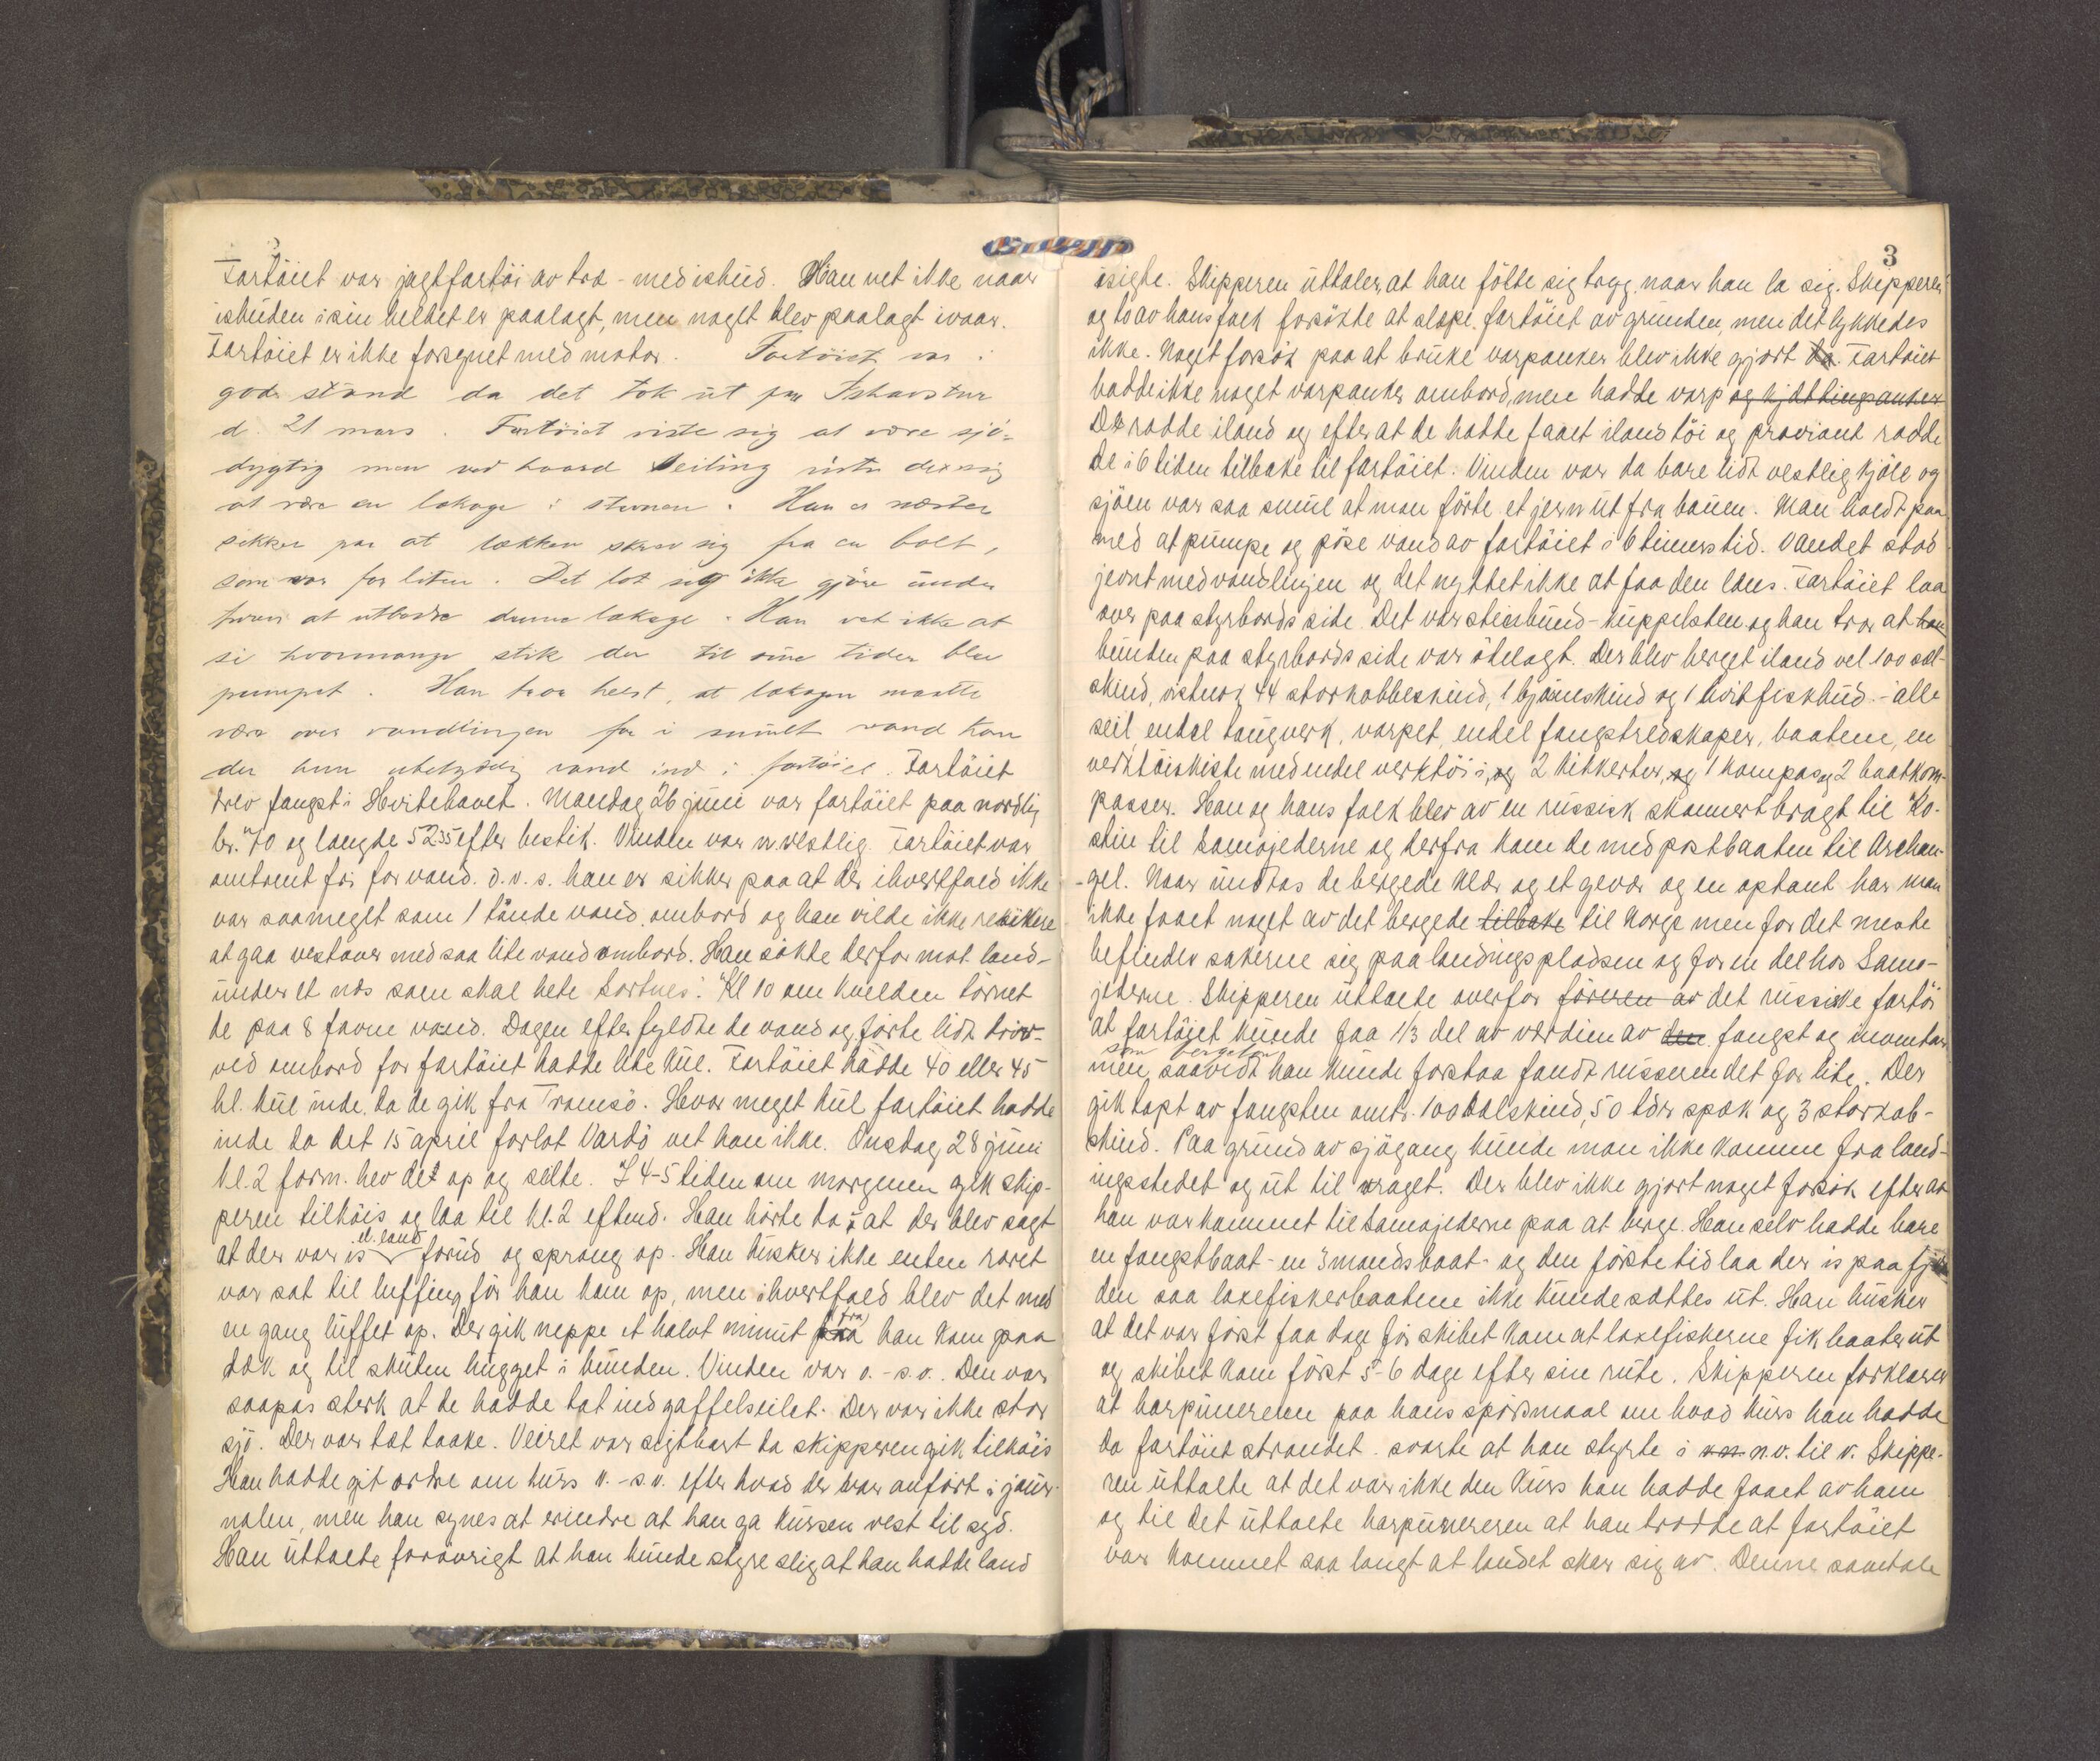 Fartöiet var jagtfartöi av træ - med ishud. Han vet ikke naar
ishuden i sin helhet er paalagt, men noget blev paalagt ivaar.
Fartöiet er ikke forsynet med motor. Fartöiet var i
god stand da det tok ut paa Ishavstur
d. 21 mars. Fartöiet viste sig at være sjö-
dygtig men ved haard seiling viste der sig
at være en lækage i stevnen. Han er næsten
sikker paa at lækken skrev sig fra en bolt,
som var for liten. Det lot sig ikke gjöre under
turen at utbedre denne lækage. Han vet ikke at
si hvormange stik der til sine tider blev
pumpet. Han tror helst, at lækagen maatte
være over vandlinjen for i smult vand kom
der kun ubetydelig vand ind i fartöiet. Fartöiet
drev fangst i Hvitehavet. Mandag 26 juni var fartöiet paa nordlig
br. 70 og længde 52 35 efter bestik. Vinden var n. vestlig. Fartöiet var
omtrent fri for vand. d.v.s. han er sikker paa at der ihvertfald ikke
var saameget som 1 tönde vand ombord og han vilde ikke resikere
at gaa vestover med saa lite vand ombord. Han sökte derfor mot land-
under et næs som skal hete Sortnes. Kl 10 om kvelden törnet
de paa 8 favne vand. Dagen efter fyldte de vand og förte lidt driv-
ved ombord for fartöiet hadde lite kul. Fartöiet hadde 40 eller 45
hl. kul inde, da de gik fra Tromsö. Hvor meget kul fartöiet hadde
inde da det 15 april forlot Vardö vet han ikke. Onsdag 28 juni
kl. 2 form. hev det op og seilte. I 4-5 tiden om morgenen gik skip-
peren tilköis og laa til kl. 2 efterm. Han hörte da at der blev sagt
at der var is el. land forud og sprang op. Han husker ikke enten roret
var sat til luffing för han kom op, men ihvertfald blev det med
en gang luffet op. Der gik neppe et halvt minut fra han kom paa
dæk og til skuten hugget i bunden. Vinden var o.-s.o. Den var
saapas sterk at de hadde tat ind gaffelseilet. Der var ikke stor
sjö. Der var tæt taake. Veiret var sigtbart da skipperen gik tilköis
Han hadde git ordre om kurs v.-s.v. efter hvad der var anfört i jour-
nalen, men han synes at erindre at han ga kursen vest til syd.
Han uttalte foróvrigt at han kunde styre slig at han hadde land
3
isigte. Skipperen uttaler, at han fölte sig tryg, naar han la sig. Skipperen
og to av hans folk forsökte at slæpe fartöiet av grunden, men det lykkedes
ikke. Noget forsök paa at bruke varpanker blev ikke gjort da. Fartöiet
hadde ikke noget varpanker ombord, men hadde varp og kjættingsanker
De rodde iland og efter at de hadde faaet iland töi og proviant rodde
de i 6 tiden tilbake til fartöiet. Vinden var da bare lidt vestlig kjöle og
sjöen var saa smul at man förte et jern ut fra bauen. Man holdt paa
med at pumpe og pöse vand av fartöiet i 6 timers tid. Vandet stod
jevnt med vandlinjen og det nyttet ikke at faa den læns. Fartöiet laa
over paa styrbords side. Det var stenbund - kuppelsten og han tror at
bunden paa styrbords side var ödelagt. Der blev berget iland vel 100 sæl-
skind, vistnok 44 storkobbeskind, 1 björneskind og 1 hvitfiskhud - alle
seil, endel taugverk, varpet, endel fangstredskaper, baatene, en
verktöikiste med endel verktöi i, og 2 kikkerter, og 1 kompas og 2 baatkom-
passer. Han og hans folk blev av en russisk skonnert bragt til Ko-
stin til Samojederne og derfra kom de med postbaaten til Archan-
gel. Naar undtas de bergede klær og et gevær og en oktant har man
ikke faaet noget av det bergede tilbake til Norge men for det meste
befinder sakerne sig paa landingspladsen og for en del hos Samo-
jederne. Skipperen uttalte overfor föreren av det russiske fartöi
at fartöiet kunde faa 1/3 del av værdien av den fangst og inventar
som bergedes
men, saavidt han kunde forstaa fandt russeren det for lite. Der
gik tapt av fangsten omtr. 100 sælskind, 50 tdr spæk og 3 storkob-
skind. Paa grund av sjögang kunde man ikke komme fra land-
ingsstedet og ut til vraget. Der blev ikke gjort noget forsök efter at
han var kommet til Samojederne paa at berge. Han selv hadde bare
en fangstbaat - en 3 mandsbaat - og den förste tid laa der is paa fj
den saa laxefiskerbaatene ikke kunde sættes ut. Han husker
at det var först faa dage för skibet kom at laxefiskerne fik baater ut
og skibet kom först 5-6 dage efter sin rute. Skipperen forklarer
at harpuneren paa hans spörsmaal om hvad kurs han hadde
da fartöiet strandet svarte at han styrte i n.v. til v. Skippe-
ren uttalte at det var ikke den kurs han hadde faaet av ham
og til det uttalte harpuneren at han trodde at fartöiet
var kommet saa langt at landet skar sig av. Denne samtale